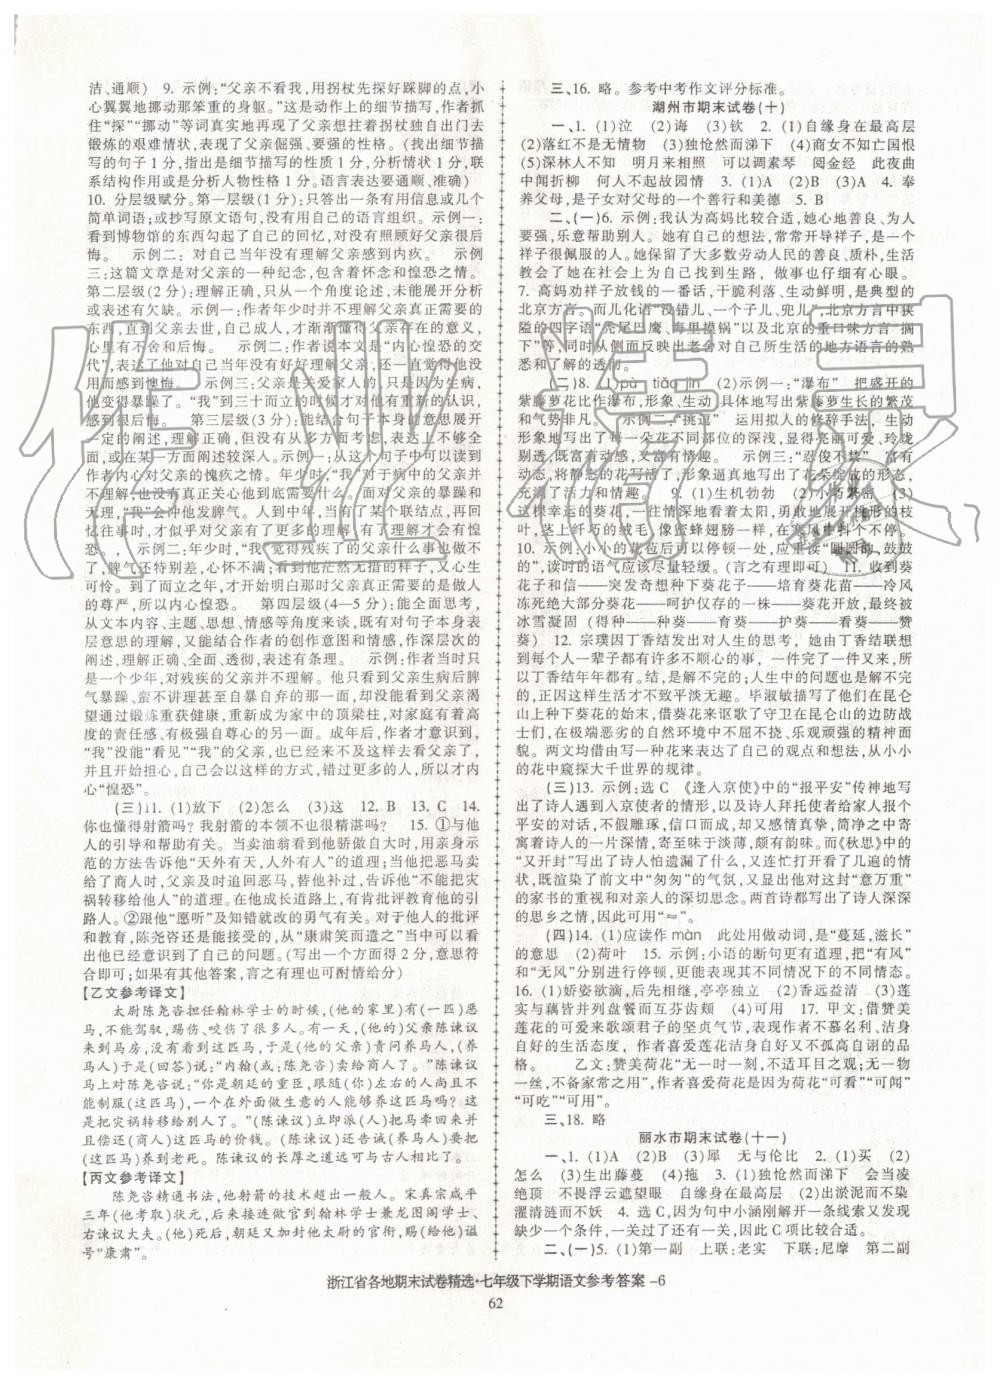 洁、通顺)　9. 示例:“父亲不看我,用拐杖先探好踩脚的点,小
心翼翼地挪动那笨重的身躯。”这是动作上的细节描写,作者抓
住“探”“挪动”等词真实地再现了父亲想拄着拐杖独自出门去
锻炼的艰难情状,表现了父亲倔强、要强的特点。(找出细节描
写的句子 1 分,指出是细节描写的性质 1 分,分析情状 1 分,联
系结构作用或是分析人物性格 1 分。语言表达要通顺、准确)
10. 分层级赋分。第一层级(1 分):只答出一条有用信息或几个
简单词语;或抄写原文语句,没有自己的语言组织。示例一:
看到博物馆的东西勾起了自己的回忆,对没有照顾好父亲很后
悔。　示例二:对自己年少没有理解父亲感到内疚。　示例
三:这篇文章是对父亲的一种纪念,包含着怀念和惶恐之情。
第二层级(2 分):理解正确,只从一个角度论述,未能展开分析
或表述有欠缺。示例一:作者年少时并不理解父亲真正需要的
东西,直到父亲去世,自己成人,才渐渐懂得父亲存在的意义,
心里有不舍和后悔。　示例二:作者说本文是“内心惶恐的交
代”,表达了他对自己年少时没有好好理解父亲,还一直觉得他没
用而感到懊悔。　示例三:父亲是关爱家人的,只是因为生病,
他变得暴躁了。“我”到三十而立的时候才对他有重新的认识,
感到很后悔。　第三层级(3 分):能结合句子本身的意义展开
一定的阐述,理解正确,但没有从多方面考虑,表达上不够全
面,或在某一方面阐述较深入。示例一:从这个句子中可以体
会到作者内心对父亲的愧疚之情。年少时,“我”对于病中的父亲并
不理解,也没有真正关心他到底需要什么,面对父亲的暴躁和
无理,“我”会冲他发脾气。人到中年,当有了某个联结点,再回
忆往事时,才似乎对父亲有了更多的理解,有了理解才会有惶
恐。　示例二:年少时,“我”觉得残疾了的父亲什么事也做不
了,脾气还特别差,心怀不满;看到他茫然无措的样子,又心生
可怜。到了而立之年,才开始明白那时父亲真正需要的是做人
的尊严,所以内心惶恐。　第四层级(4—5 分):能全面思考,
从文本内容、主题、思想、情感等角度来谈,既有对句子本身表
层意思的理解,又能结合作者的创作意图和情感,作深层次的
阐述,理解正确、全面、透彻,表述有条理。　示例:作者当时只
是一个少年,对残疾的父亲并不理解。他只看到父亲生病后脾
气暴躁、蛮不讲理甚至自暴自弃的那一面,却没有懂得父亲渴
望通过锻炼重获健康,重新成为家中的顶梁柱,对家庭有着高
度的责任感,有极强自尊心的另一面。成年后,作者才意识到,
“我”没能“看见”“我”的父亲,当他真正看到、理解了父亲后,
并且开始担心,自己会以这样的方式,错过更多的人,所以才内
心“惶恐”。
(三)11. (1)放下　(2)怎么　(3)这　12. B　13. C　14.
你也懂得射箭吗? 我射箭的本领不也很精湛吗?　15. ①与他
人的引导和帮助有关。当卖油翁看到他骄傲自大时,用亲身示
范的方法告诉他“天外有天,人外有人”的道理;当他把恶马卖
给了商人时,父亲及时追回恶马,替他补过,告诉他“不能把灾
祸转移给他人”的道理。在他成长道路上,有肯批评教育他的引
路人。②跟他“愿听”及知错就改的勇气有关。对于他人的批评
和教育,陈尧咨还是能接受的,从“康肃笑而遣之”当中可以看
出他已经意识到了自己的问题。(写出一个方面得 2 分,意思符
合即可;如有其他答案,言之有理也可酌情给分)
【乙文参考译文】
太尉陈尧咨担任翰林学士的时候,(他的家里)有(一匹)恶
马,不能驾驭,踢伤、咬伤了很多人。有一天,(他的)父亲陈谏议
来到马房,没有看到这匹马,于是(他的父亲)责问养马人,(养
马人)于是说:“内翰(或:陈尧咨)卖给商人了。”陈谏议(对陈
尧咨)说:“你是朝廷的重臣,跟随(你)左右的人尚且不
能制服(这匹马),一个在外面做生意的人怎么能养(它)?这
是把灾祸转移给别人啊!”(陈谏议)立即派(人)把马牵回来并
且偿还(商人)这匹马的价钱。(陈谏议)还告诫(养马人)要
(把这匹马)养到老死。陈谏议的长厚之道远远可与古代人比。
【丙文参考译文】
陈尧咨精通书法,他射箭的技术超出一般人。宋真宗咸平
三年(他考取)状元,后来接连做官到翰林学士兼龙图阁学士、
右谏议大夫。(他)死后,朝廷又加封他太尉的官衔,赐(给他)谥
号“康肃”。
三、16. 略。参考中考作文评分标准。
湖州市期末试卷(十)
一、1. (1)泣　(2)海　(3)钦　2. (1)自缘身在最高层
(2)落红不是无情物　(3)独怆然而涕下　(4)商女不知亡国恨
(5)深林人不知　明月来相照　可以调素琴　阅金经　此夜曲
中闻折柳　何人不起故园情　3. (1)A　(2)B　(3)A　4. 奉
养父母,是子女对父母的一个善行和美德　5. B
二、(一)6. 示例:我认为高妈比较合适,她心地善良、为人
要强,乐意帮助别人。她有自己的想法,常常开导祥子,是一个
祥子很佩服的人。她体现了大多数劳动人民的善良、质朴,生活
教会了她在社会上如何找到出路,做事也仔细小心有眼光。
7. 高妈劝祥子放钱的一番话,干脆利落、生动鲜明,是典型的
北京方言,而儿化语“钱、一个子儿、兜儿”,北京方言中狭
隘的四字语“秃尾巴鹰、海里摸锅”以及北京的重口味方言“搁
下”等,同时从侧面反映出老舍对自己所生活的地方语言的熟
悉和了解的透彻。
(二)8. (1)pù　tiāo jìn　(2)示例一:“瀑布”　把盛开的
紫藤萝花比作瀑布,形象、生动、具体地写出紫藤萝生长的繁茂
和气势非凡。　示例二:“挑逗”　运用拟人的修辞手法,生动
形象地写出了每一朵花不同部位的深浅,显得明亮可爱,玲珑
剔透,充满动感、情趣。　示例三:“忍俊不禁”　富有
动态,将静态的花写活了,形象逼真地写出了花朵绽放的形态,
充满了活力和情趣。　9. (1)生机勃勃　(2)小巧繁密　(3)
这样幸运的葵花,一往情深地看着太阳,勇敢地展开桃形的枝
叶,茎上纤巧的绒毛,像蜜蜂翅膀一样,在寒风中抖个不停
10. 示例:小小的花苞后可以停顿一处,应重读“圆圆的,鼓鼓
的”,读时的语气应该尽量轻缓。(言之有理即可)　11. 收到葵
花子和信——突发奇想种下葵花子——培育葵花苗——冷风
冻死绝大部分葵花——呵护仅存的一株——葵花开放,最终被
冰雪凝固 (得种——种葵——育葵——护葵——看葵——赞
葵)　12. 宗璞因丁香结发出对人生的思考,她由丁香结联想
到的每个人一辈子都有许多不顺心的事,一件完了一件又来,所
以丁香结年年都有。结,是解不完的;人生中的问题也是解不
完的,正因这样生活才不致平淡无趣。毕淑敏描写了在昆仑
山上种下葵花的始末,借葵花来讴歌了守卫在昆仑山的边防战
士们,在极端恶劣的自然环境中不屈不挠、乐观顽强的精神面
貌。两文均借由写一种花来表达了自己的观点和想法,从小小
的花中窥探大千世界的规律。
(三)13. 示例:选 C　《逢入京使》中的“报平安”传神地写
出了诗人遇到入京使者的情形,以及诗人拜托使者给家人报个
平安的对话,不假雕琢,信口而成,又感情真挚,简净之中寄
寓着诗人的一片深情,寄至味于淡薄,颇有韵味。而《秋思》中的
“又开封”写出了诗人怕遗漏了什么,又重新打开看了几遍的情
状,既渲染了前文中“匆匆”的气氛,又显出他对这封“意万重”
的家书的重视和对亲人的深切思念。两首诗都写出了诗人深深
的思乡之情,因此可用“≈”。
(四)14. (1)应读作 màn　此处用做动词,是“蔓延,滋长”
的意思　(2)荷叶　15. 示例:小语的断句更有道理,把“有风”
和“无风”分别进行停顿,更体现出了荷花的不同情态。
16. (1)娇姿欲滴,后先相继,亭亭独立　(2)香远益清　(3)莲
实与藕皆并列盘餐而互芬齿颊　(4)可用　17. 甲文:借赞美
莲花的可爱来歌颂君子的坚贞气节,表现作者不慕名利、洁身
自好的生活态度,作者喜爱莲花洁身自好又不孤高自诩的品
格。　乙文:赞美荷花“无一时一刻,不适耳目之观;无一物
一丝,不备家常之用”,作者喜爱荷花因为荷花“可看”“可闻”
“可吃”“可用”。
三、18. 略
丽水市期末试卷(十一)
一、1. (1)A　(2)B　(3)犀　无与伦比　2. (1)买　(2)
怎么　(3)生出藤蔓　(4)拖　3. (1)独怆然而涕下　会当凌
绝顶　不畏浮云遮望眼　自缘身在最高层　(2)出淤泥而不染
濯清涟而不妖　4. 选 C,因为句中小涵刚解开一条线索又发现
缺少一个条件,一关过了还有一关,因此 C 项比较合适。
二、(一)5. (1)第一副　上联:老实　下联:尼摩　第二副
浙江省各地期末试卷精选·七年级下学期语文参考答案 -6
62